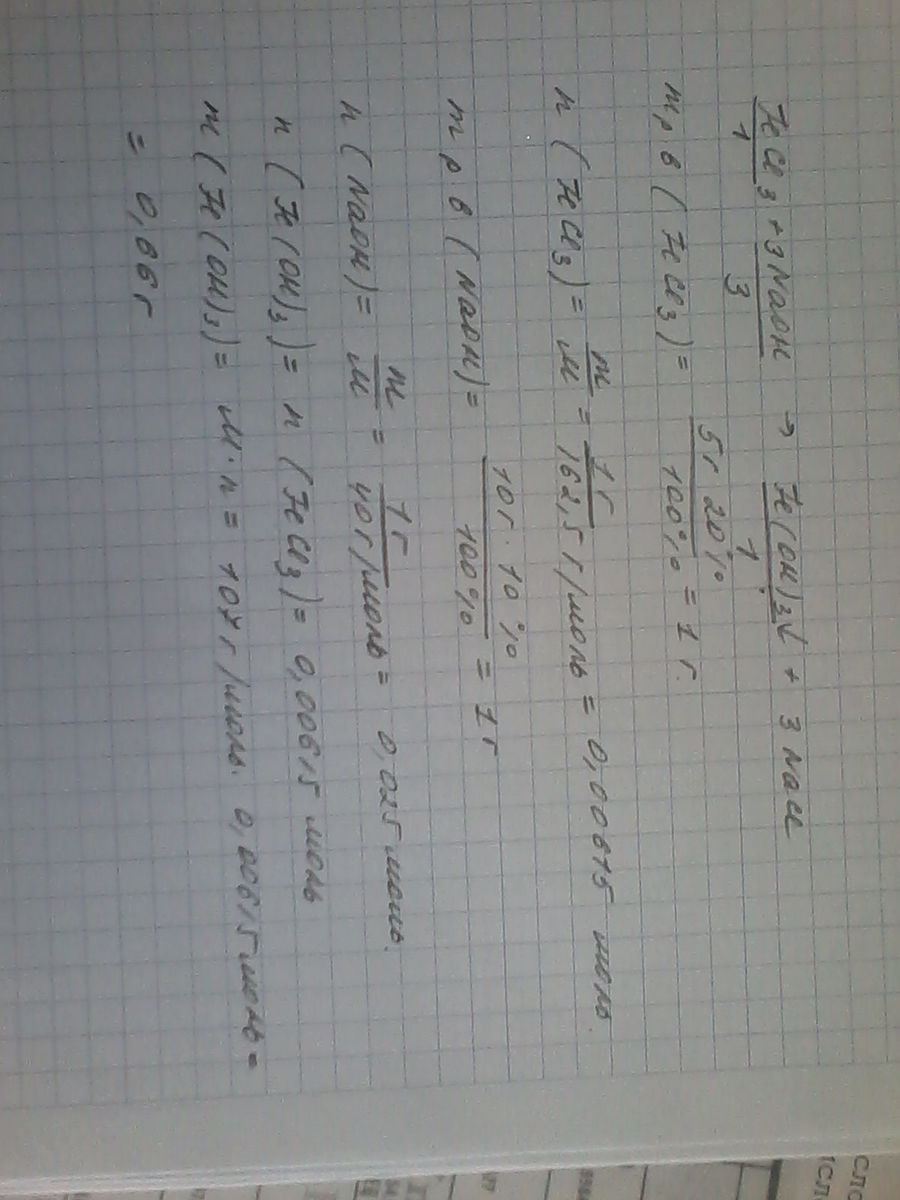 FeCl₃ + 3NaOH → Fe(OH)₃↓ + 3 NaCl
1 3 1
m р в (FeCl₃) = 5г 20% / 100% = 1 г.
n (FeCl₃) = m / M = 1 г / 162,5 г/моль = 0,00615 моль.
m р в (NaOH) = 10г · 10% / 100% = 1г
n (NaOH) = m / M = 1 г / 40 г/моль = 0,025 моль.
n (Fe(OH)₃) = n (FeCl₃) = 0,00615 моль
m (Fe(OH)₃) = M · n = 107 г/моль · 0,00615 моль =
= 0,66 г
СЛО